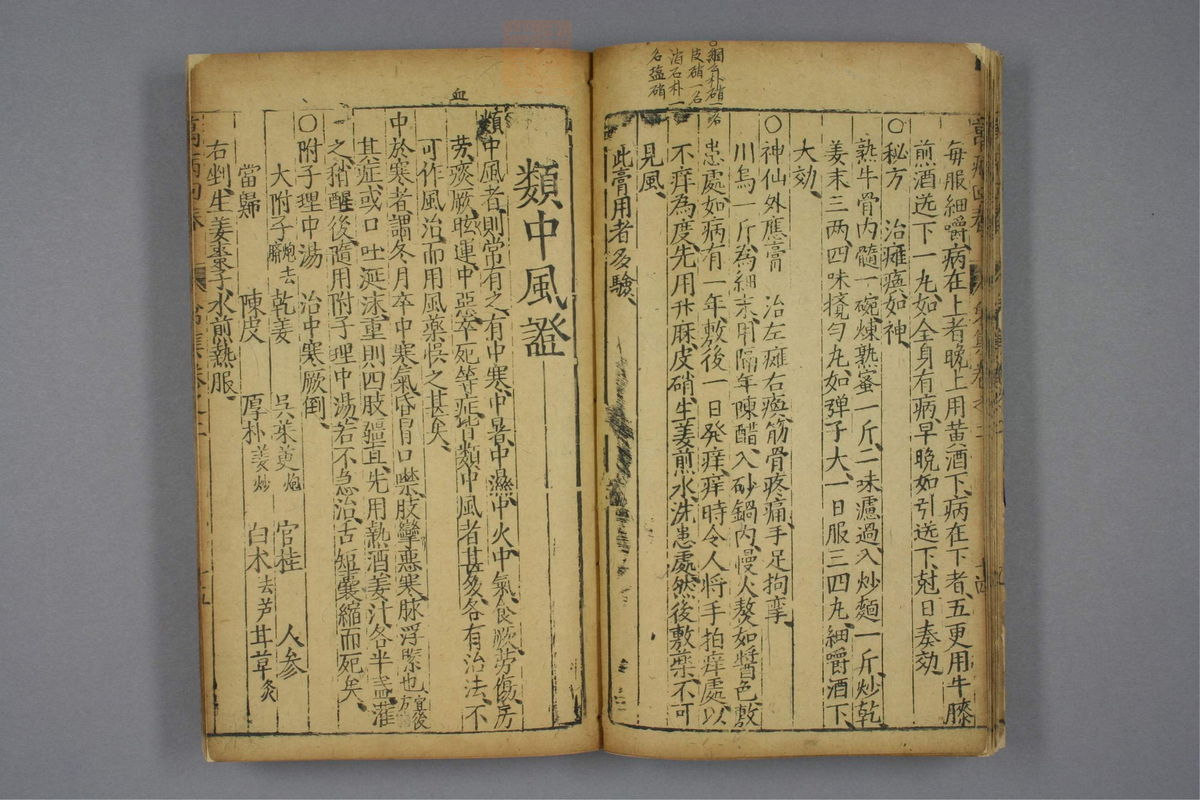 每服細嚼、病在上者、晚上用黄酒下、病在下者、五更用牛膝
煎酒送下一丸、如全身有病、早晚如引送下、尅日奏効、
○秘方　治癱瘓如神、
熟牛骨内髓一碗、煉熟蜜一斤、二味濾過入炒麵一斤、炒乾
姜末三两、四味攪匀丸如弹子大、一日服三四丸、細嚼酒下、
大効、
○神仙外應膏　治左癱右瘓、筋骨疼痛、手足拘攣、
川烏一斤為細末、用隔年陳醋入砂鍋内慢火熬如醬色、敷
患處、如病有一年、敷後一日發痒、痒時令人将手拍痒處、以
不痒為度、先用升麻、皮硝、生姜煎水、洗患處、然後敷藥、不可
見風、
此膏用者多驗、
皮硝一名
消石朴一
名盐硝
類中風證
類中風者、則常有之、有中寒、中暑、中濕、中火、中氣、食厥、劳傷、房
劳、痰厥、眩運、中惡、卒死等症、皆類中風者甚多、各有治法、不
可作風治、而用風藥、悮之甚矣、
中於寒者、謂冬月卒中寒氣、昏冒口噤、肢攣惡寒、脉浮緊也、
其症或口吐涎沫、重則四肢彊直、先用熱酒姜汁各半盞灌
之、稍醒後、隨用附子理中湯、若不急治、舌短囊縮而死矣、
○附子理中湯　治中寒厥倒、
大附子炮去臍　乾姜　吳茱萸炮　官桂　人参
當歸　陳皮　厚朴姜炒　白术去芦　甘草炙
右剉、生姜棗子水煎熱服、
血